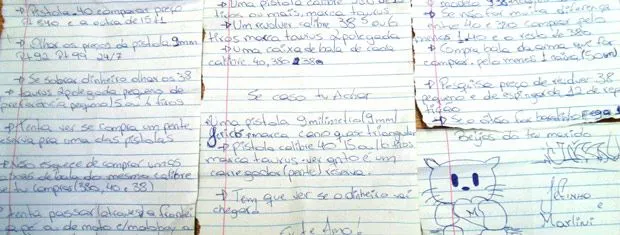 → Pistola .40 comparar preço
e a outra de 15+1
→ Olhar os preços da pistola 9mm
24/7
→ Se sobrar dinheiro olhar os 38
taurus 2 polegada pequeno de
preferência 5 ou 6 tiros
→ Tenta ver se compra um pente
reserva pra uma das pistolas
→ Não esquece de comprar umas
caixas de bala do mesmo calibre
se tu comprar (380, 40 e 38)
tenta passar (atravessar) a frontei
a pé ou de moto c/ motoboy a
→ Uma pistola calibre
tiros ou mais, marca taurus
→ Um revolver calibre 38 5 ou 6
tiros marca taurus 2 polegada
→ Uma caixa de bala de cada
calibre 40, 380 e 38
Se caso tu Achar
→ Uma pistola 9 milimetro (9mm)
marca cano quase triangular
→ Pistola calibre 40 15 ou 16 tiros
marca taurus, ver onto é um
carregador (pente) reserva.
→ Tem que ver se o dinheiro vai
chegar
Eu te Amo!
modelo 938
→ Se não for muita diferença
do 40 e 380 comprar pelo
menos 1 40 e o resto de 380
→ Compra bala da arma que for
comprar, pelo menos 1 caixa (50 un)
→ Pesquisa preço de revolver 38
pequeno e de espingarda 12 de rep
→ Se o silico for baratinho pega 1
Beijos do teu marido
M
e
Marlini